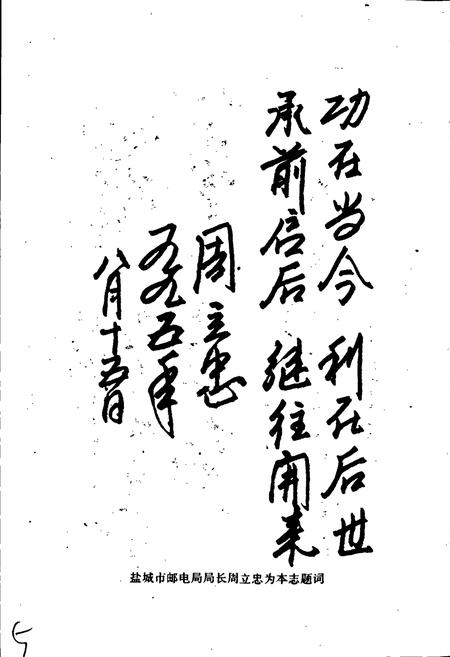 功在当今 利在后世
承前启后 继往开来
周立忠
一九九五年
八月十五日
盐城市邮电局局长周立忠为本志题词
5